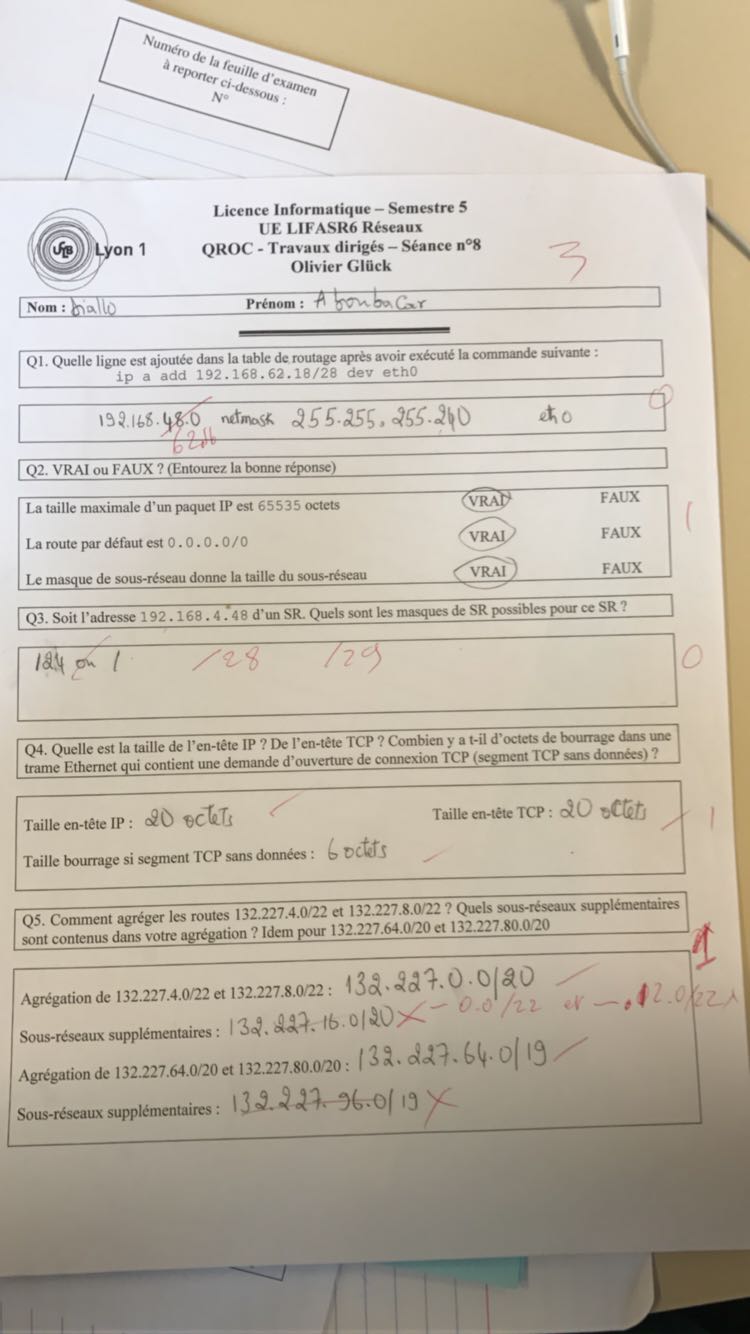 Numéro de la feuille d'examen
à reporter ci-dessous :
N°
Licence Informatique – Semestre 5
UE LIFASR6 Réseaux
QROC - Travaux dirigés – Séance n°8
Olivier Glück
UCB Lyon 1
3
Nom : Diallo Prénom : Aboubacar
Q1. Quelle ligne est ajoutée dans la table de routage après avoir exécuté la commande suivante :
ip a add 192.168.62.18/28 dev eth0
0
192.168.48.0 netmask 255.255.255.240 eth0
62.16
Q2. VRAI ou FAUX ? (Entourez la bonne réponse)
La taille maximale d'un paquet IP est 65535 octets VRAI FAUX
1
La route par défaut est 0.0.0.0/0 VRAI FAUX
Le masque de sous-réseau donne la taille du sous-réseau VRAI FAUX
Q3. Soit l'adresse 192.168.4.48 d'un SR. Quels sont les masques de SR possibles pour ce SR ?
124 ou 1 /28 /29 0
Q4. Quelle est la taille de l'en-tête IP ? De l'en-tête TCP ? Combien y a t-il d'octets de bourrage dans une
trame Ethernet qui contient une demande d'ouverture de connexion TCP (segment TCP sans données) ?
Taille en-tête IP : 20 octets Taille en-tête TCP : 20 octets 1
Taille bourrage si segment TCP sans données : 6 octets
Q5. Comment agréger les routes 132.227.4.0/22 et 132.227.8.0/22 ? Quels sous-réseaux supplémentaires
sont contenus dans votre agrégation ? Idem pour 132.227.64.0/20 et 132.227.80.0/20
1
Agrégation de 132.227.4.0/22 et 132.227.8.0/22 : 132.227.0.0/20
Sous-réseaux supplémentaires : 132.227.16.0/20 – 0.0/22 et – .12.0/22
Agrégation de 132.227.64.0/20 et 132.227.80.0/20 : 132.227.64.0/19
Sous-réseaux supplémentaires : 132.227.96.0/19